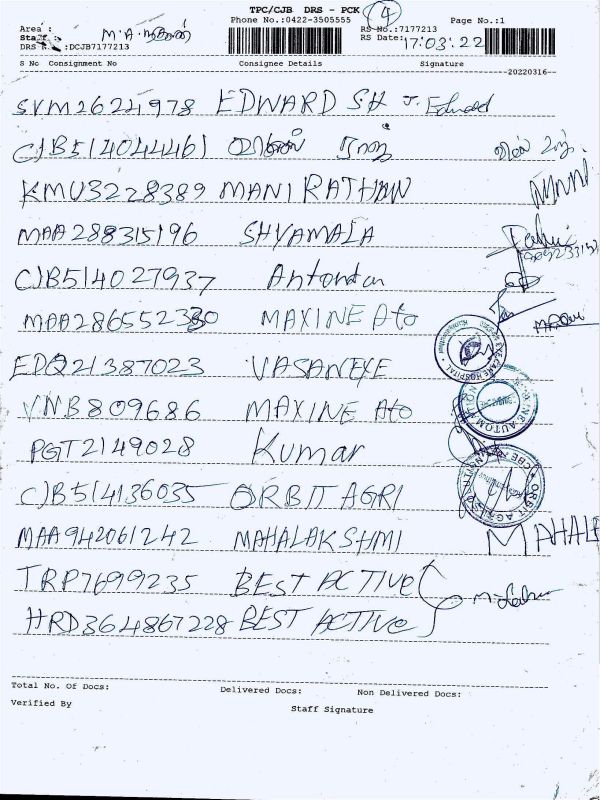 TPC/CJB DRS - PCK (4)
Phone No.:0422-3505555 Page No.:1
Area :
Staff :
DRS :DCJB7177213
RS No.:7177213
RS Date: 17.03.22
S No Consignment No Consignee Details Signature
20220316
SVM2624978 EDWARD SH J. Edward
CJB514044461
KMU3228389 MANIRATHAN
MAA288315196 SHYAMALA
CJB514027937
MAA286552330 MAXINE Ato
EDQ21387023 VASANEYE
EYE CARE HOSPITAL
VNB809686 MAXINE Ato
PGT2149028 Kumar
CJB514136035 ORBIT AGRI
MAA942061242 MAHALAKSHMI MAHAL
TRP7699235 BEST ACTIVE
HRD364867228 BEST ACTIVE
Total No. Of Docs: Delivered Docs: Non Delivered Docs:
Verified By Staff Signature